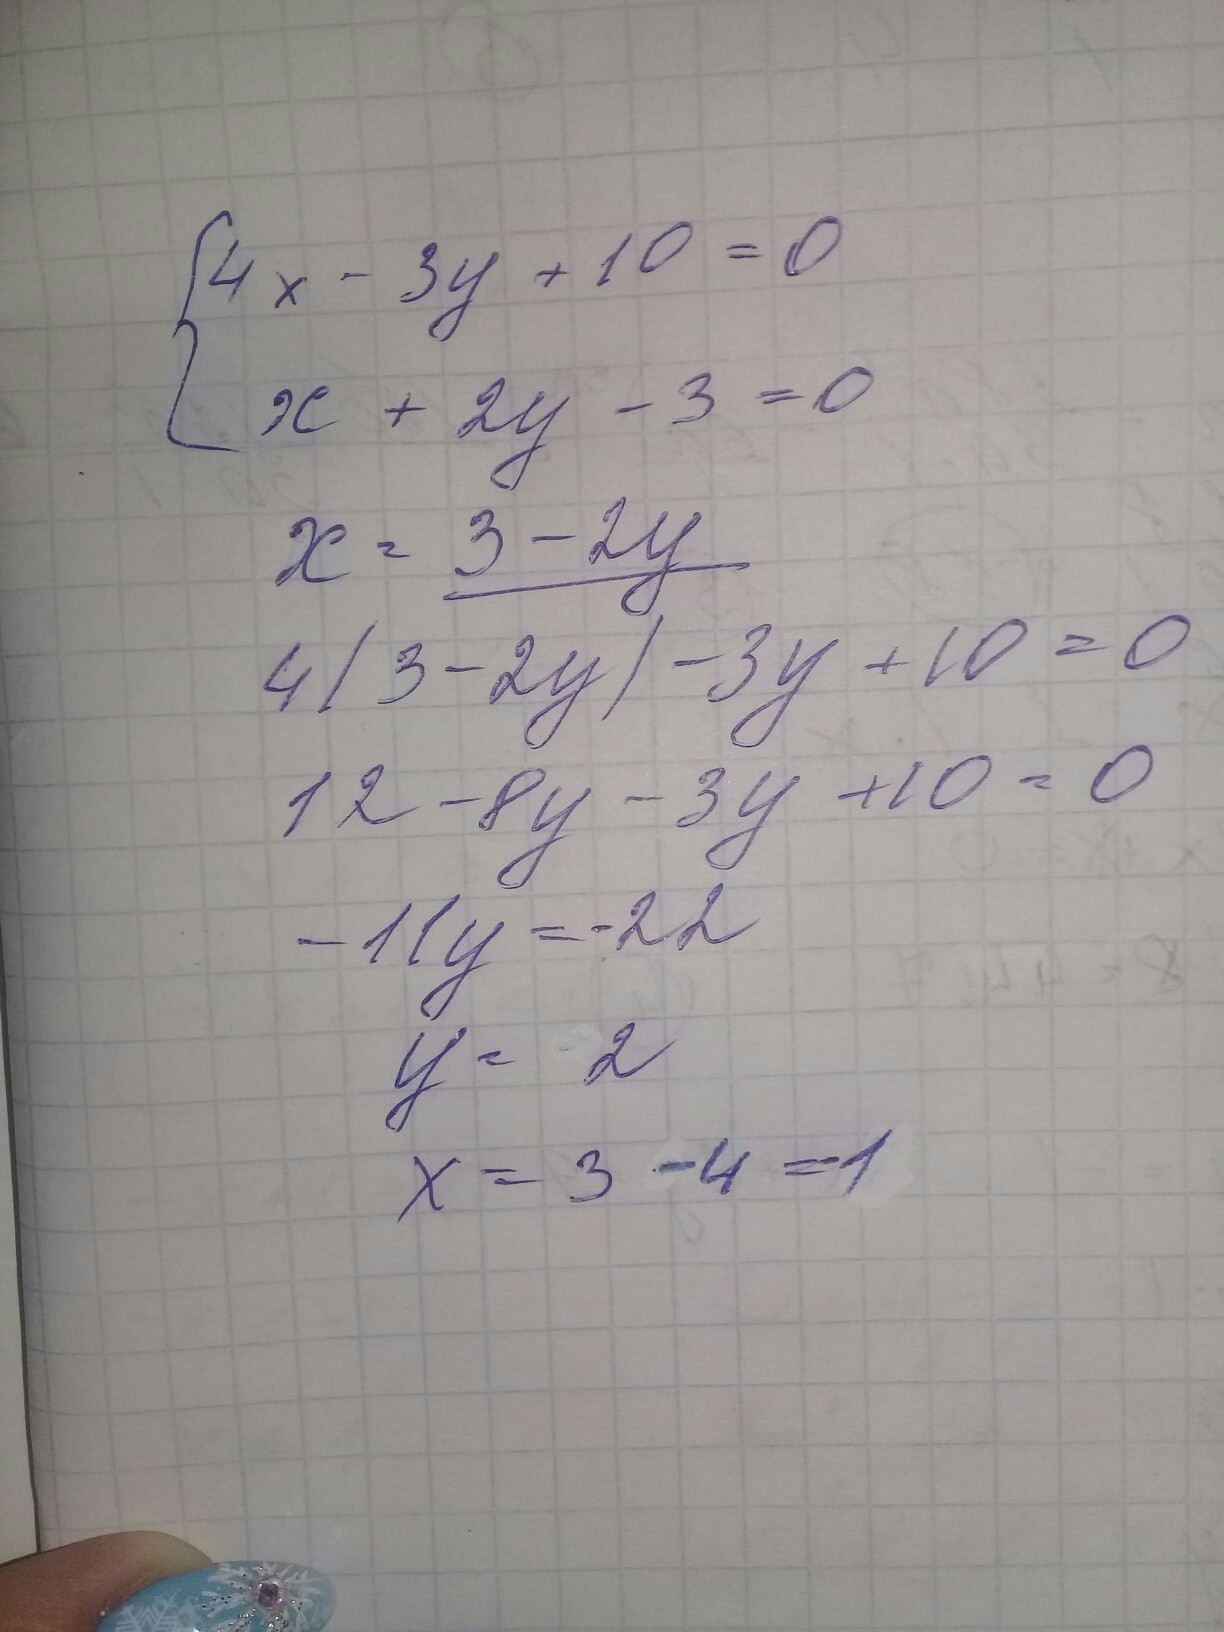 4x - 3y + 10 = 0
x + 2y - 3 = 0
x = 3 - 2y
4(3 - 2y) - 3y + 10 = 0
12 - 8y - 3y + 10 = 0
-11y = -22
y = 2
x = 3 - 4 = -1